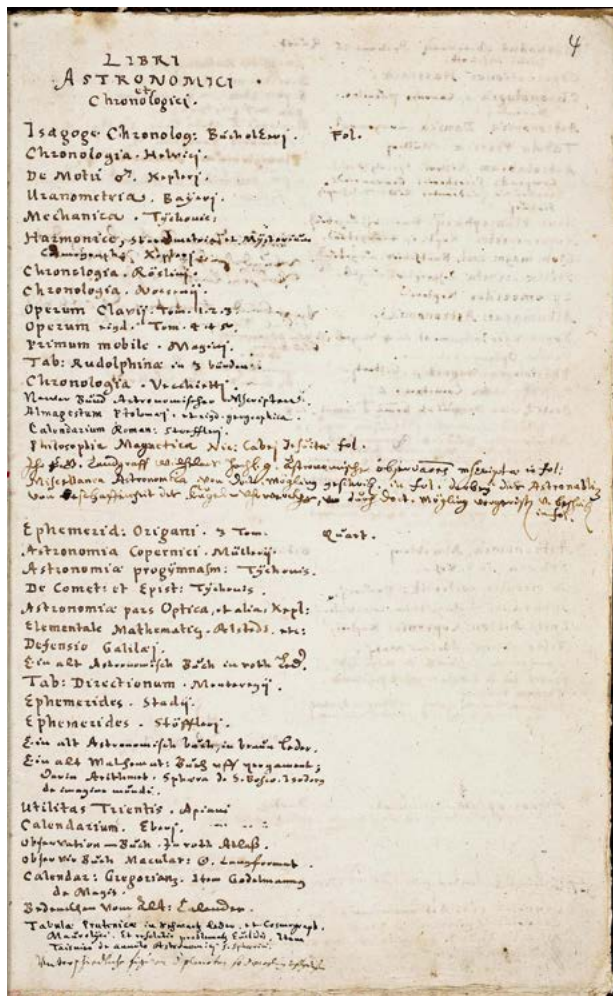 4
LIBRI
ASTRONOMICI
et
Chronologici.
Isagoge Chronolog: Bucholtzeri. Fol.
Chronologia Helvici.
De Motu ♂. Kepleri.
Uranometria. Bayeri.
Mechanica. Tÿchonis:
Harmonice, Stereometria et Mÿsterium
Cosmograph: Kepleri.
Chronologia. Röslini.
Chronologia.
Operum Clavij. Tom. 1. 2. 3
Operum eiusd. Tom. 4 et 5.
Primum mobile. Magini.
Tab: Rudolphinæ in 3 bünden.
Chronologia. Vecchietti.
Newer Bund Astronomischer Mscripten.
Almagestum Ptolemæi, et eiusd. geographica.
Calendarium Roman: Stoeffleri.
Philosophia Magnetica Nic: Cabei Jesuitæ fol.
Landgraff Astronomische observationes mscriptæ in fol:
Miscellanea Astronomica von Doct. Mögling geschrib. in fol.
von beschaffenheit der durch Doct. Mögling
in fol.
Ephemerid: Origani. 3 Tom. Quart.
Astronomia Copernici. Mülleri.
Astronomiæ progÿmnasm: Tÿchonis.
De Comet: et Epist: Tÿchonis.
Astronomiæ pars Optica, et alia, Kepl:
Elementale Mathematicum. Alstedi. etc:
Defensio Galilæi.
Ein alt Astronomisch Buch in roth Led.
Tab: Directionum. Monteregij.
Ephemerides. Stadij.
Ephemerides. Stöffleri.
Ein alt Astronomisch buch, in braun leder.
Ein alt Mathemat: Buch uff pergament;
Darin Arithmet. Sphæra de S. Bosco. Isodorg
de imagine mundi.
Utilitas Trientis. Apiani
Calendarium. Eberi.
Observation Buch. In roth Atlaß.
Observir Buch Macular: ☉. Langformat.
Calendar: Gregorianz. Item Godelmanng
de Magis.
Bedencken vom Alt: Calender.
Tabulæ Prutenicæ in schwartz leder, et Cosmograph.
Maurolyci. Et resolutio problematum Euclid. Item
Taisnier de annulo Astronomico et sphærico.
Unterschiedliche figuren